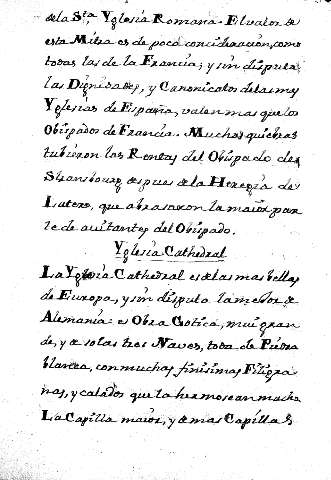 de la S.ta Yglesia Romana. El valor de
esta Mitra es de poca concideracion, como
todas las de la Francia; y sin disputa
las Dignidades, y Canonicatos de las mas
Yglesias de España, valen mas que los
Obispados de Francia. Muchas quiebras
tubieron las Rentas del Obispado de
Stransbourg despues de la Heregia de
Lutero, que abrasaron la maior par
te de avitantes del Obispado.
Yglesia Cathedral
La Yglesia Cathedral es de las mas bellas
de Europa, y sin disputa la mejor de
Alemania: es Obra Gotica, mui gran
de, y de solas tres Naves, toda de Piedra
blanca, con muchas finisimas Filigra
nas, y calados que la hermosean mucho
La Capilla maior, y demas Capillas